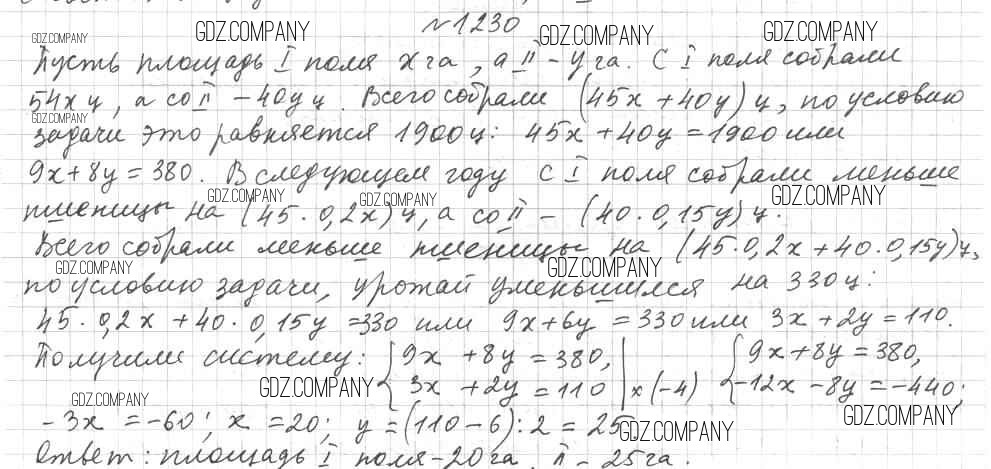 №1230
Пусть площадь I поля x га, а II – y га. С I поля собрали
54x ц, а со II – 40y ц. Всего собрали (45x + 40y) ц, по условию
задачи это равняется 1900 ц: 45x + 40y = 1900 или
9x + 8y = 380. В следующем году с I поля собрали меньше
пшеницы на (45·0,2x) ц, а со II – (40·0,15y) ц.
Всего собрали меньше пшеницы на (45·0,2x + 40·0,15y) ц,
по условию задачи, урожай уменьшился на 330 ц:
45·0,2x + 40·0,15y = 330 или 9x + 6y = 330 или 3x + 2y = 110.
Получили систему: { 9x + 8y = 380, { 9x + 8y = 380,
3x + 2y = 110 | x (-4) -12x - 8y = -440;
-3x = -60; x = 20; y = (110 - 6) : 2 = 25.
Ответ: площадь I поля – 20 га, II – 25 га.
GDZ.COMPANY
GDZ.COMPANY
GDZ.COMPANY
GDZ.COMPANY
GDZ.COMPANY
GDZ.COMPANY
GDZ.COMPANY
GDZ.COMPANY
GDZ.COMPANY
GDZ.COMPANY
GDZ.COMPANY
GDZ.COMPANY
GDZ.COMPANY
GDZ.COMPANY